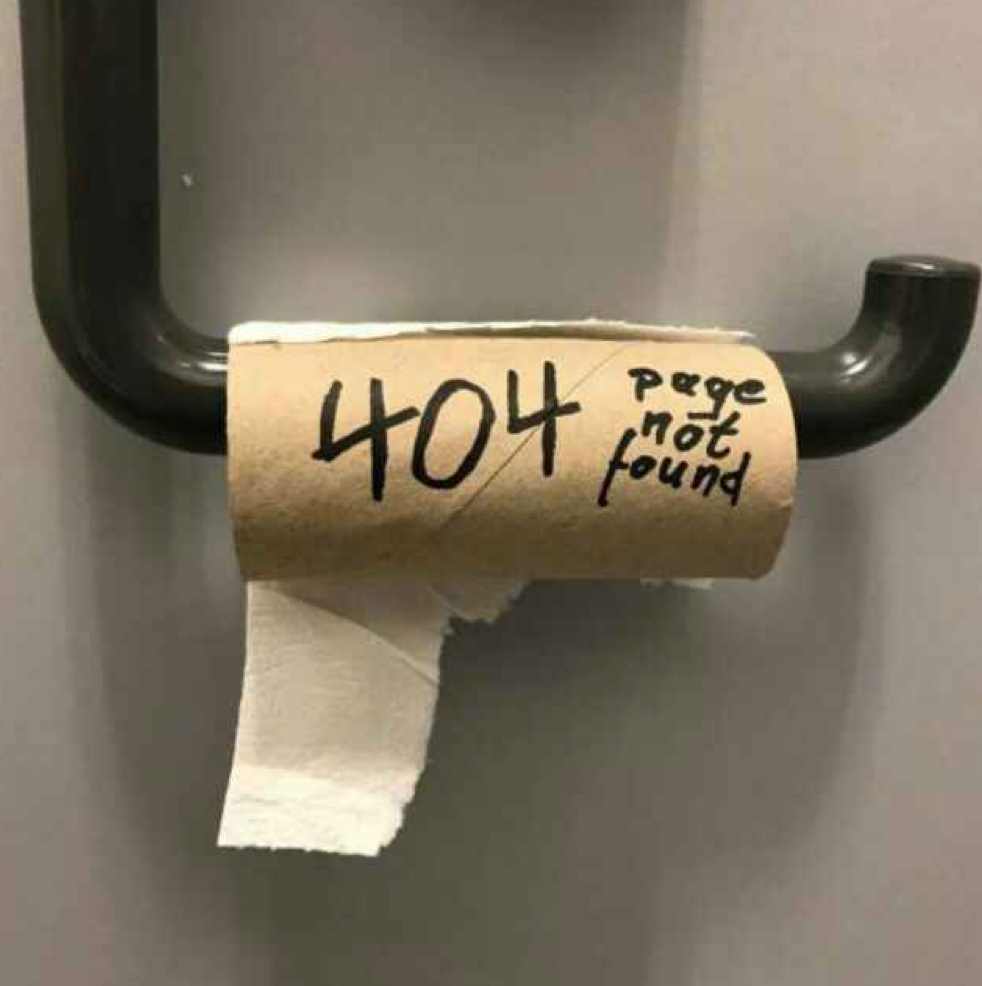 404 page
not
found